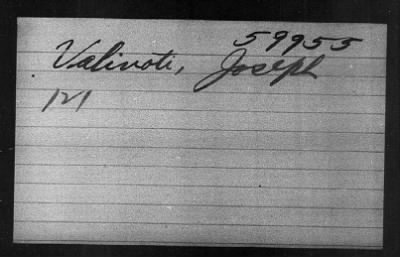 59955
Valinoti, Joseph
121